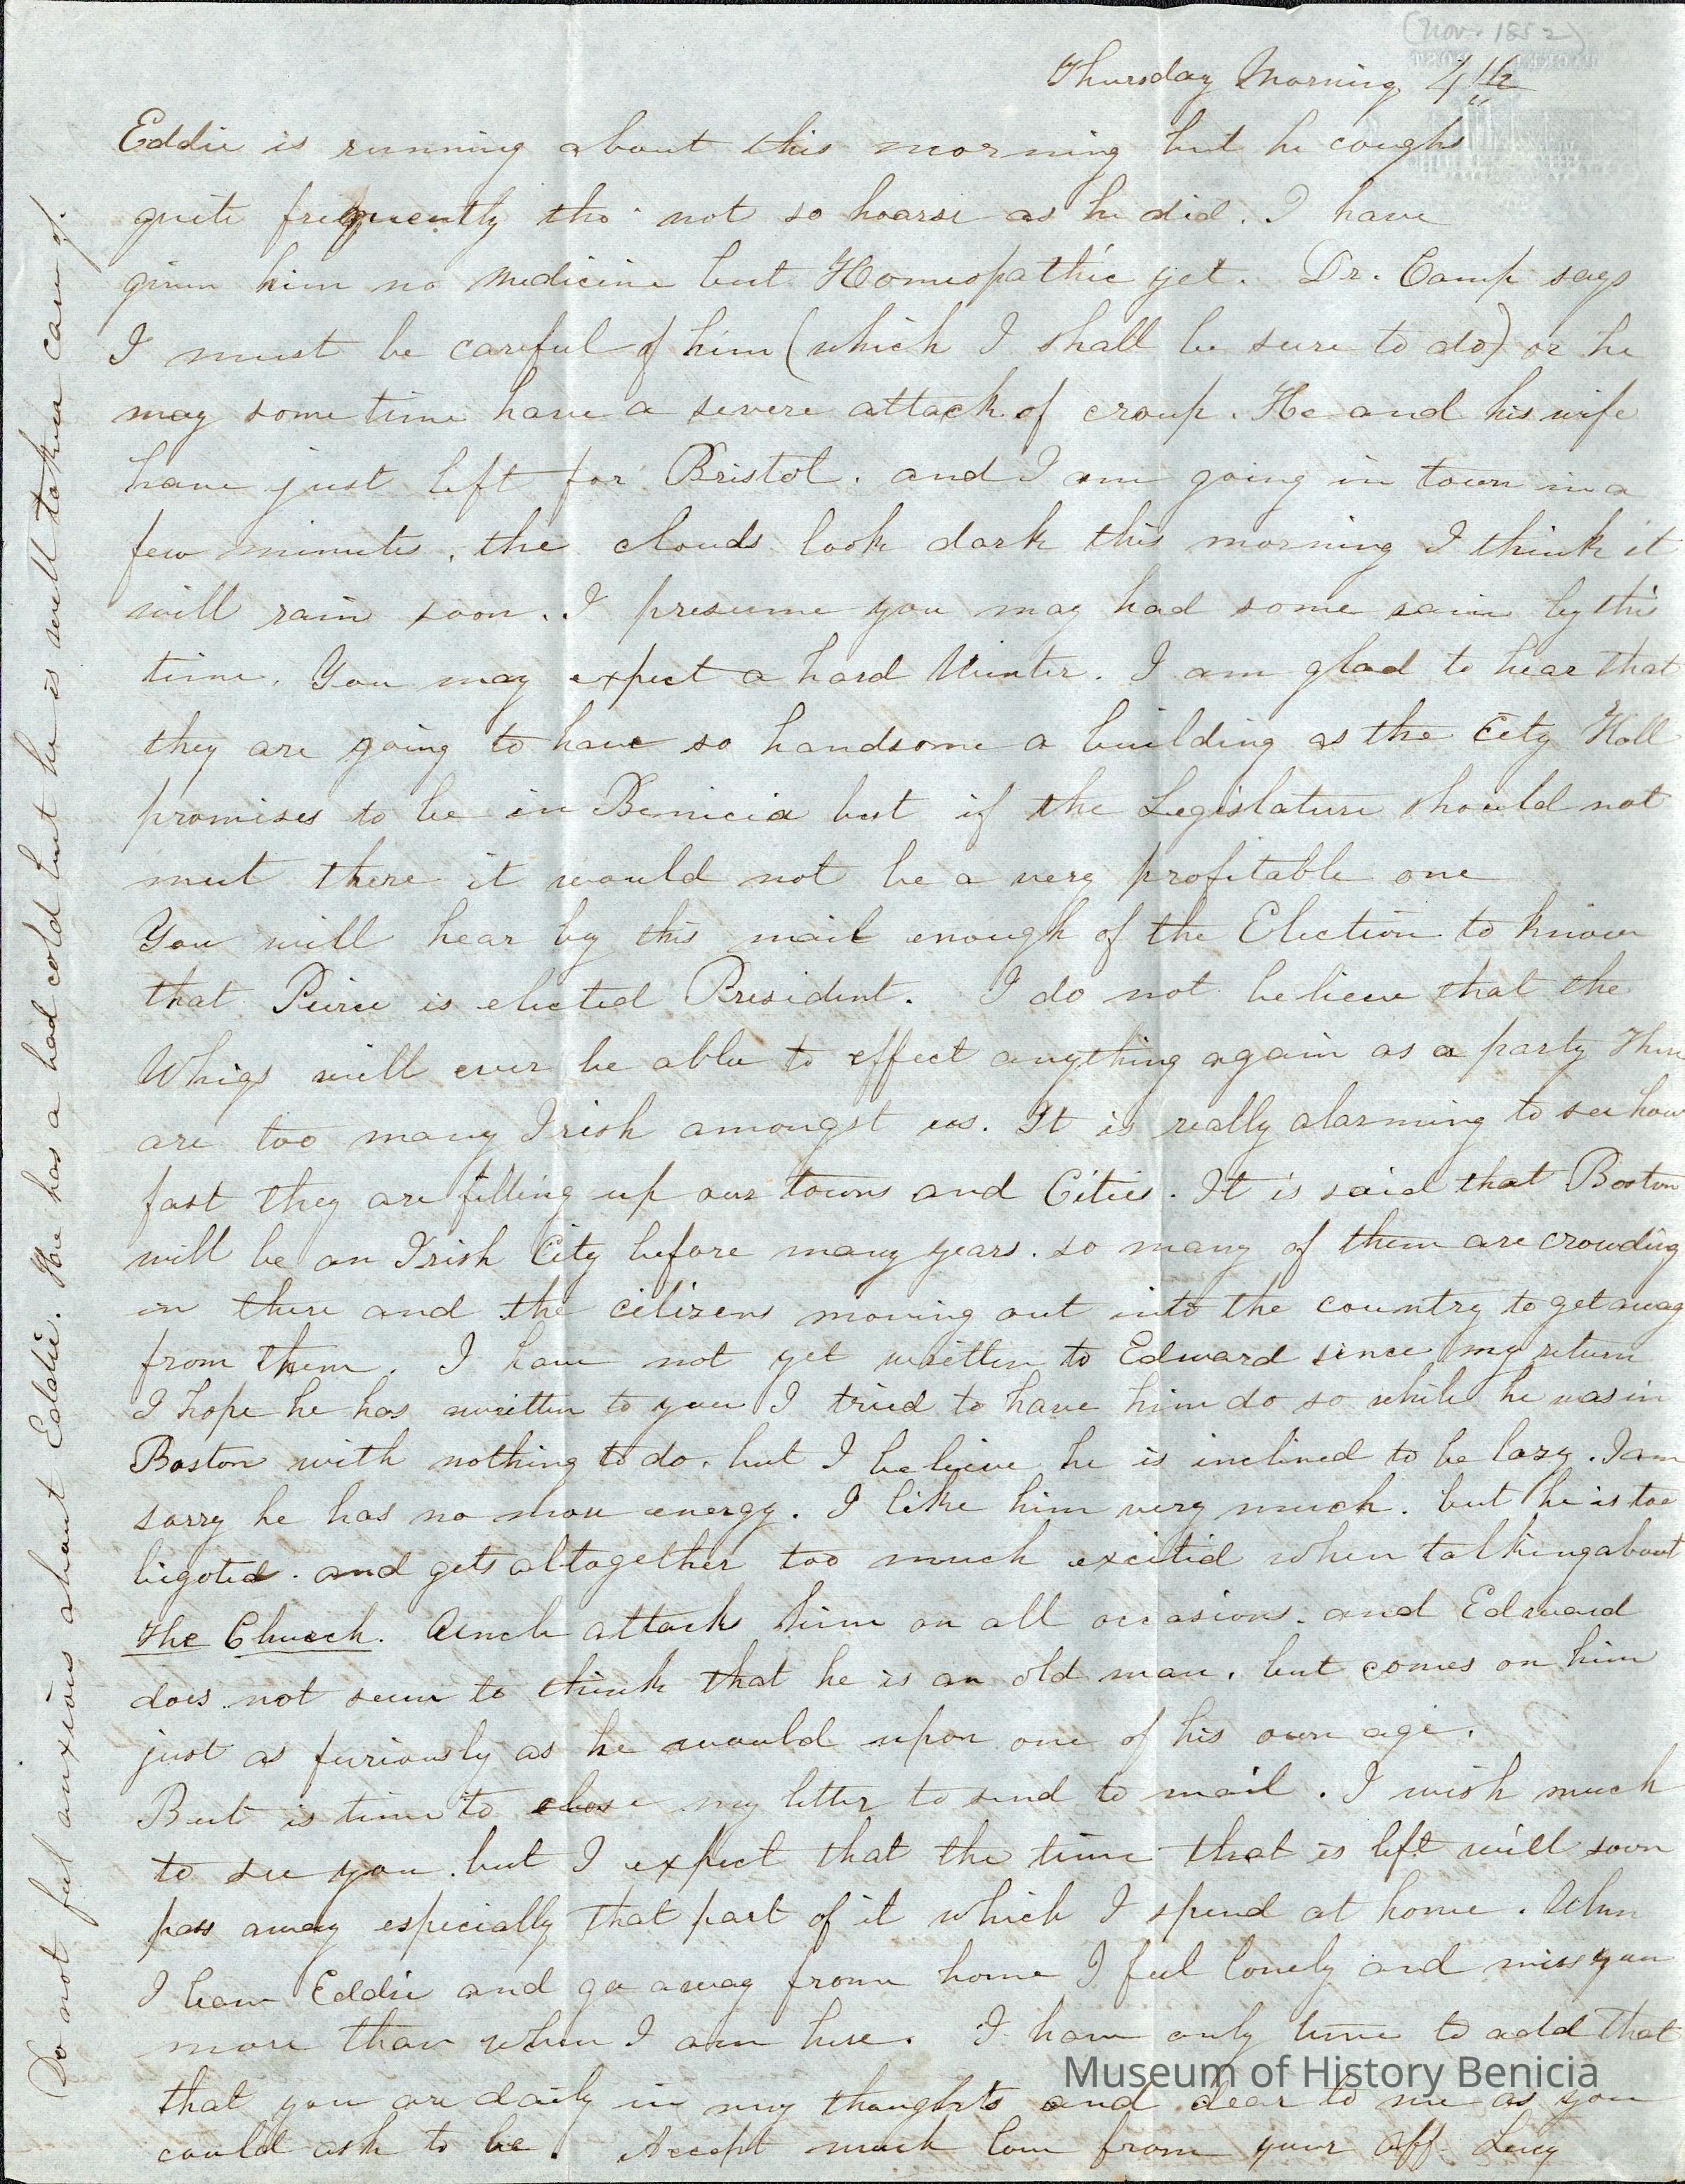 (Nov. 1852)
Thursday Morning 4th
Eddie is running about this morning but he coughs
quite frequently tho' not so hoarse as he did. I have
given him no medicine but Homeopathic yet. Dr. Camp says
I must be careful of him (which I shall be sure to do) or he
may some time have a severe attack of croup. He and his wife
have just left for Bristol. and I am going in town in a
few minutes. the clouds look dark this morning I think it
will rain soon. I presume you may had some rain by this
time. You may expect a hard Winter. I am glad to hear that
they are going to have so handsome a building as the City Hall
promises to be in Benicia but if the Legislature should not
meet there it would not be a very profitable one
You will hear by this mail enough of the Election to know
that Peirce is elected President. I do not believe that the
Whigs will ever be able to effect anything again as a party There
are too many Irish amongst us. It is really alarming to see how
fast they are filling up our towns and Cities. It is said that Boston
will be an Irish City before many years. so many of them are crowding
in there and the citizens moving out into the country to get away
from them. I have not yet written to Edward since my return
I hope he has written to you I tried to have him do so while he was in
Boston with nothing to do. but I believe he is inclined to be lazy. I am
sorry he has no more energy. I like him very much. but he is too
bigoted. and gets altogether too much excited when talking about
the Church. Uncle attacks him on all occasions. and Edward
does not seem to think that he is an old man. but comes on him
just as furiously as he would upon one of his own age.
But is time to close my letter to send to mail. I wish much
to see you. but I expect that the time that is left will soon
pass away especially that part of it which I spend at home. When
I leave Eddie and go away from home I feel lonely and miss you
more than when I am here. I have only time to add that
that you are daily in my thoughts and dear to me as you
could ask to be. Accept much love from your aff. Lucy
Do not feel anxious about Eddie. He has a bad cold but he is well taken care of.
Museum of History Benicia